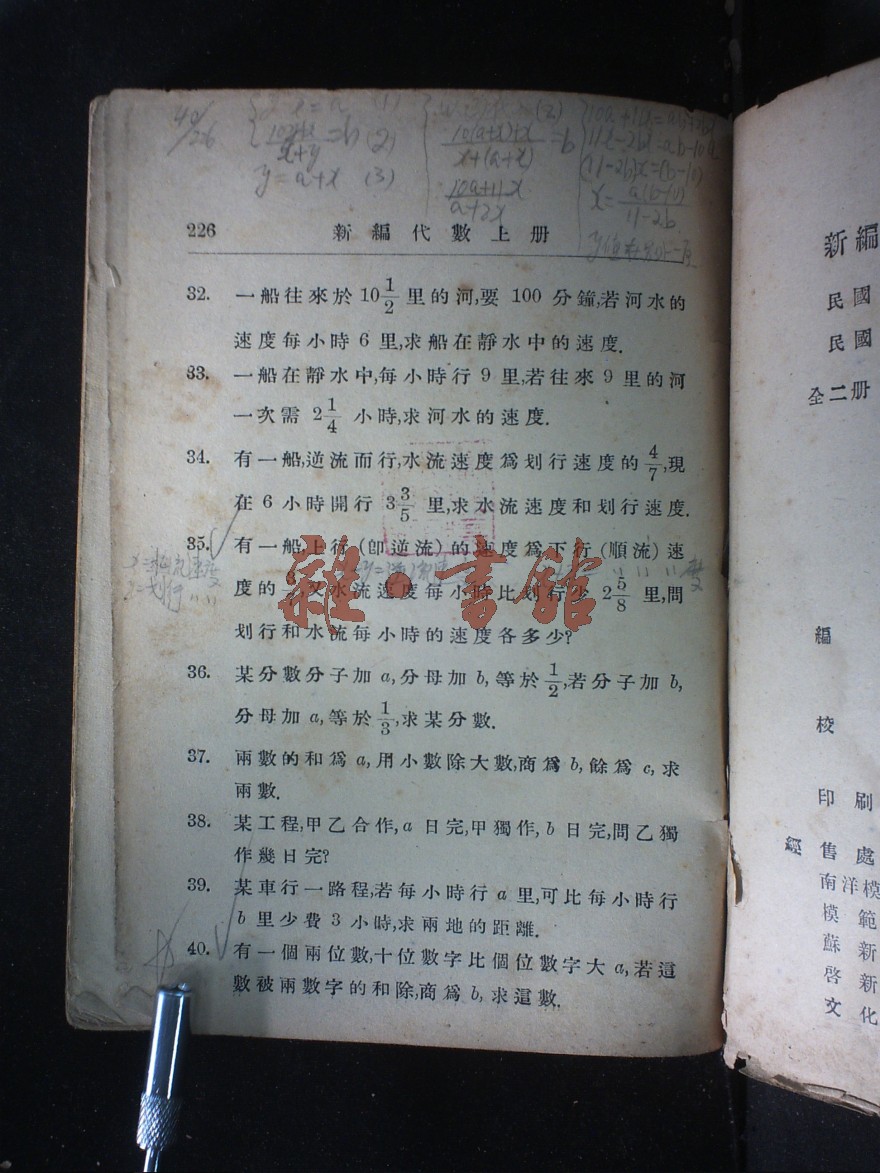 40/26
10y+x/x+y=b (2)
y=a+x (3)
(2)
10(a+x)+x/x+(a+x)=b
10a+11x/a+2x
11x-2bx=ab-10a
(11-2b)x=(b-10)
x=a(b-10)/11-2b
226 新編代數上册
32. 一船往來於 10 1/2 里的河,要 100 分鐘,若河水的
速度每小時 6 里,求船在靜水中的速度.
33. 一船在靜水中,每小時行 9 里,若往來 9 里的河
一次需 2 1/4 小時,求河水的速度.
34. 有一船,逆流而行,水流速度爲划行速度的 4/7,現
在 6 小時開行 3 3/5 里,求水流速度和划行速度.
35. 有一船,上行 (卽逆流) 的速度爲下行 (順流) 速
度的 ,又水流速度每小時比划行少 2 5/8 里,問
划行和水流每小時的速度各多少?
36. 某分數分子加 a,分母加 b, 等於 1/2,若分子加 b,
分母加 a,等於 1/3,求某分數.
37. 兩數的和爲 a, 用小數除大數,商爲 b, 餘爲 c, 求
兩數.
38. 某工程,甲乙合作, a 日完,甲獨作, b 日完,問乙獨
作幾日完?
39. 某車行一路程,若每小時行 a 里,可比每小時行
b 里少費 3 小時,求兩地的距離.
40. 有一個兩位數,十位數字比個位數字大 a,若這
數被兩數字的和除,商爲 b, 求這數.
雜·書館
新編
民國
民國
全二册
編
校
印刷
經售處
南洋模
模範
蘇新
啓新
文化